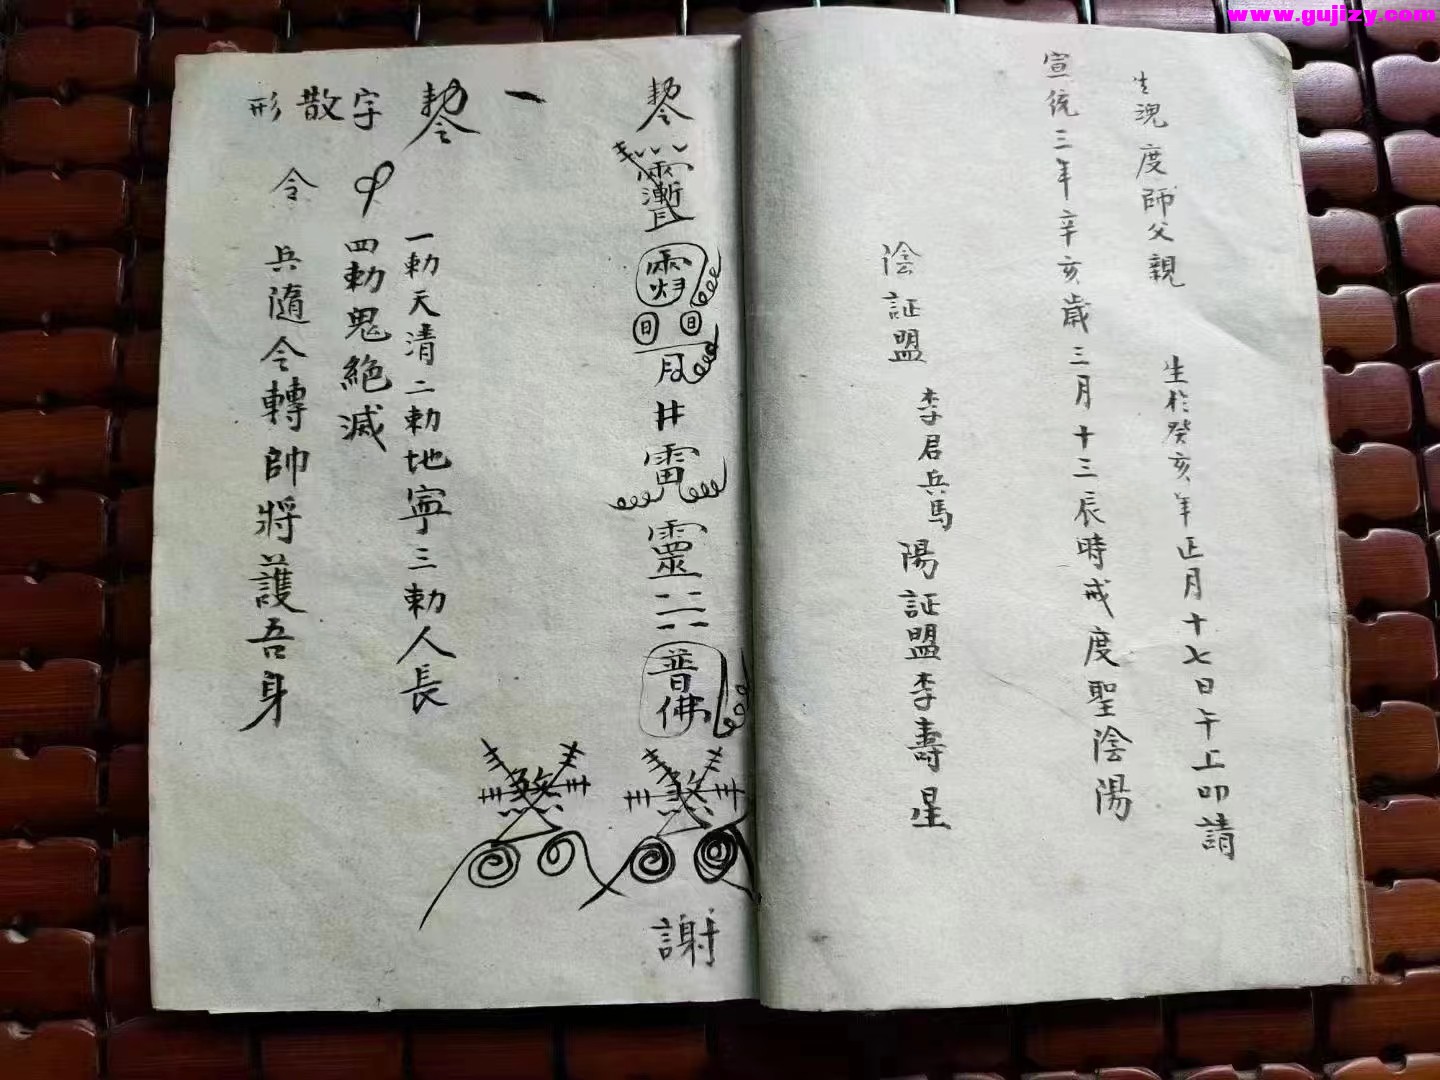 www.gujizy.com
生魂度師父親 生於癸亥年正月十七日午上叩請
宣統三年辛亥歲三月十三辰時戒度聖陰陽
陰証盟 李君兵馬 陽証盟李壽星
雷
靈
普佛
謝
一
一勅天清二勅地寧三勅人長
四勅鬼絕滅
形散字
令 兵隨令轉帥將護吾身